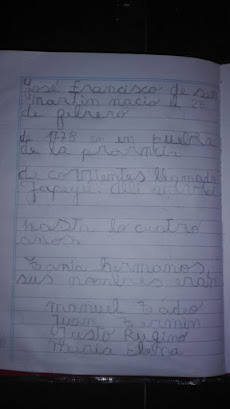 José Francisco de san
martin nacio el 25
de febrero
de 1778 en un puebla
de la provincia
de corrientes llamado
Yapeyú
hasta lo cuatro
años
Tania hermanos,
sus nombres eran
manuel Tadeo
Juan Fermin
Justo Rufino
Maria Elena